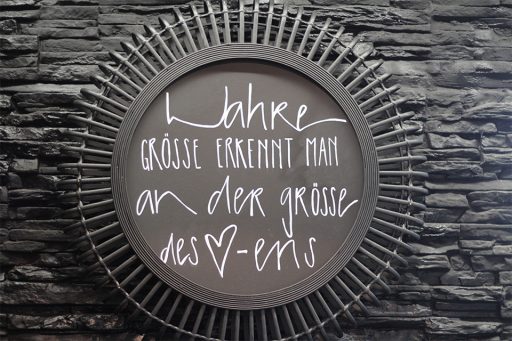 Wahre
GRÖSSE ERKENNT MAN
an der grösse
des ♡-ens